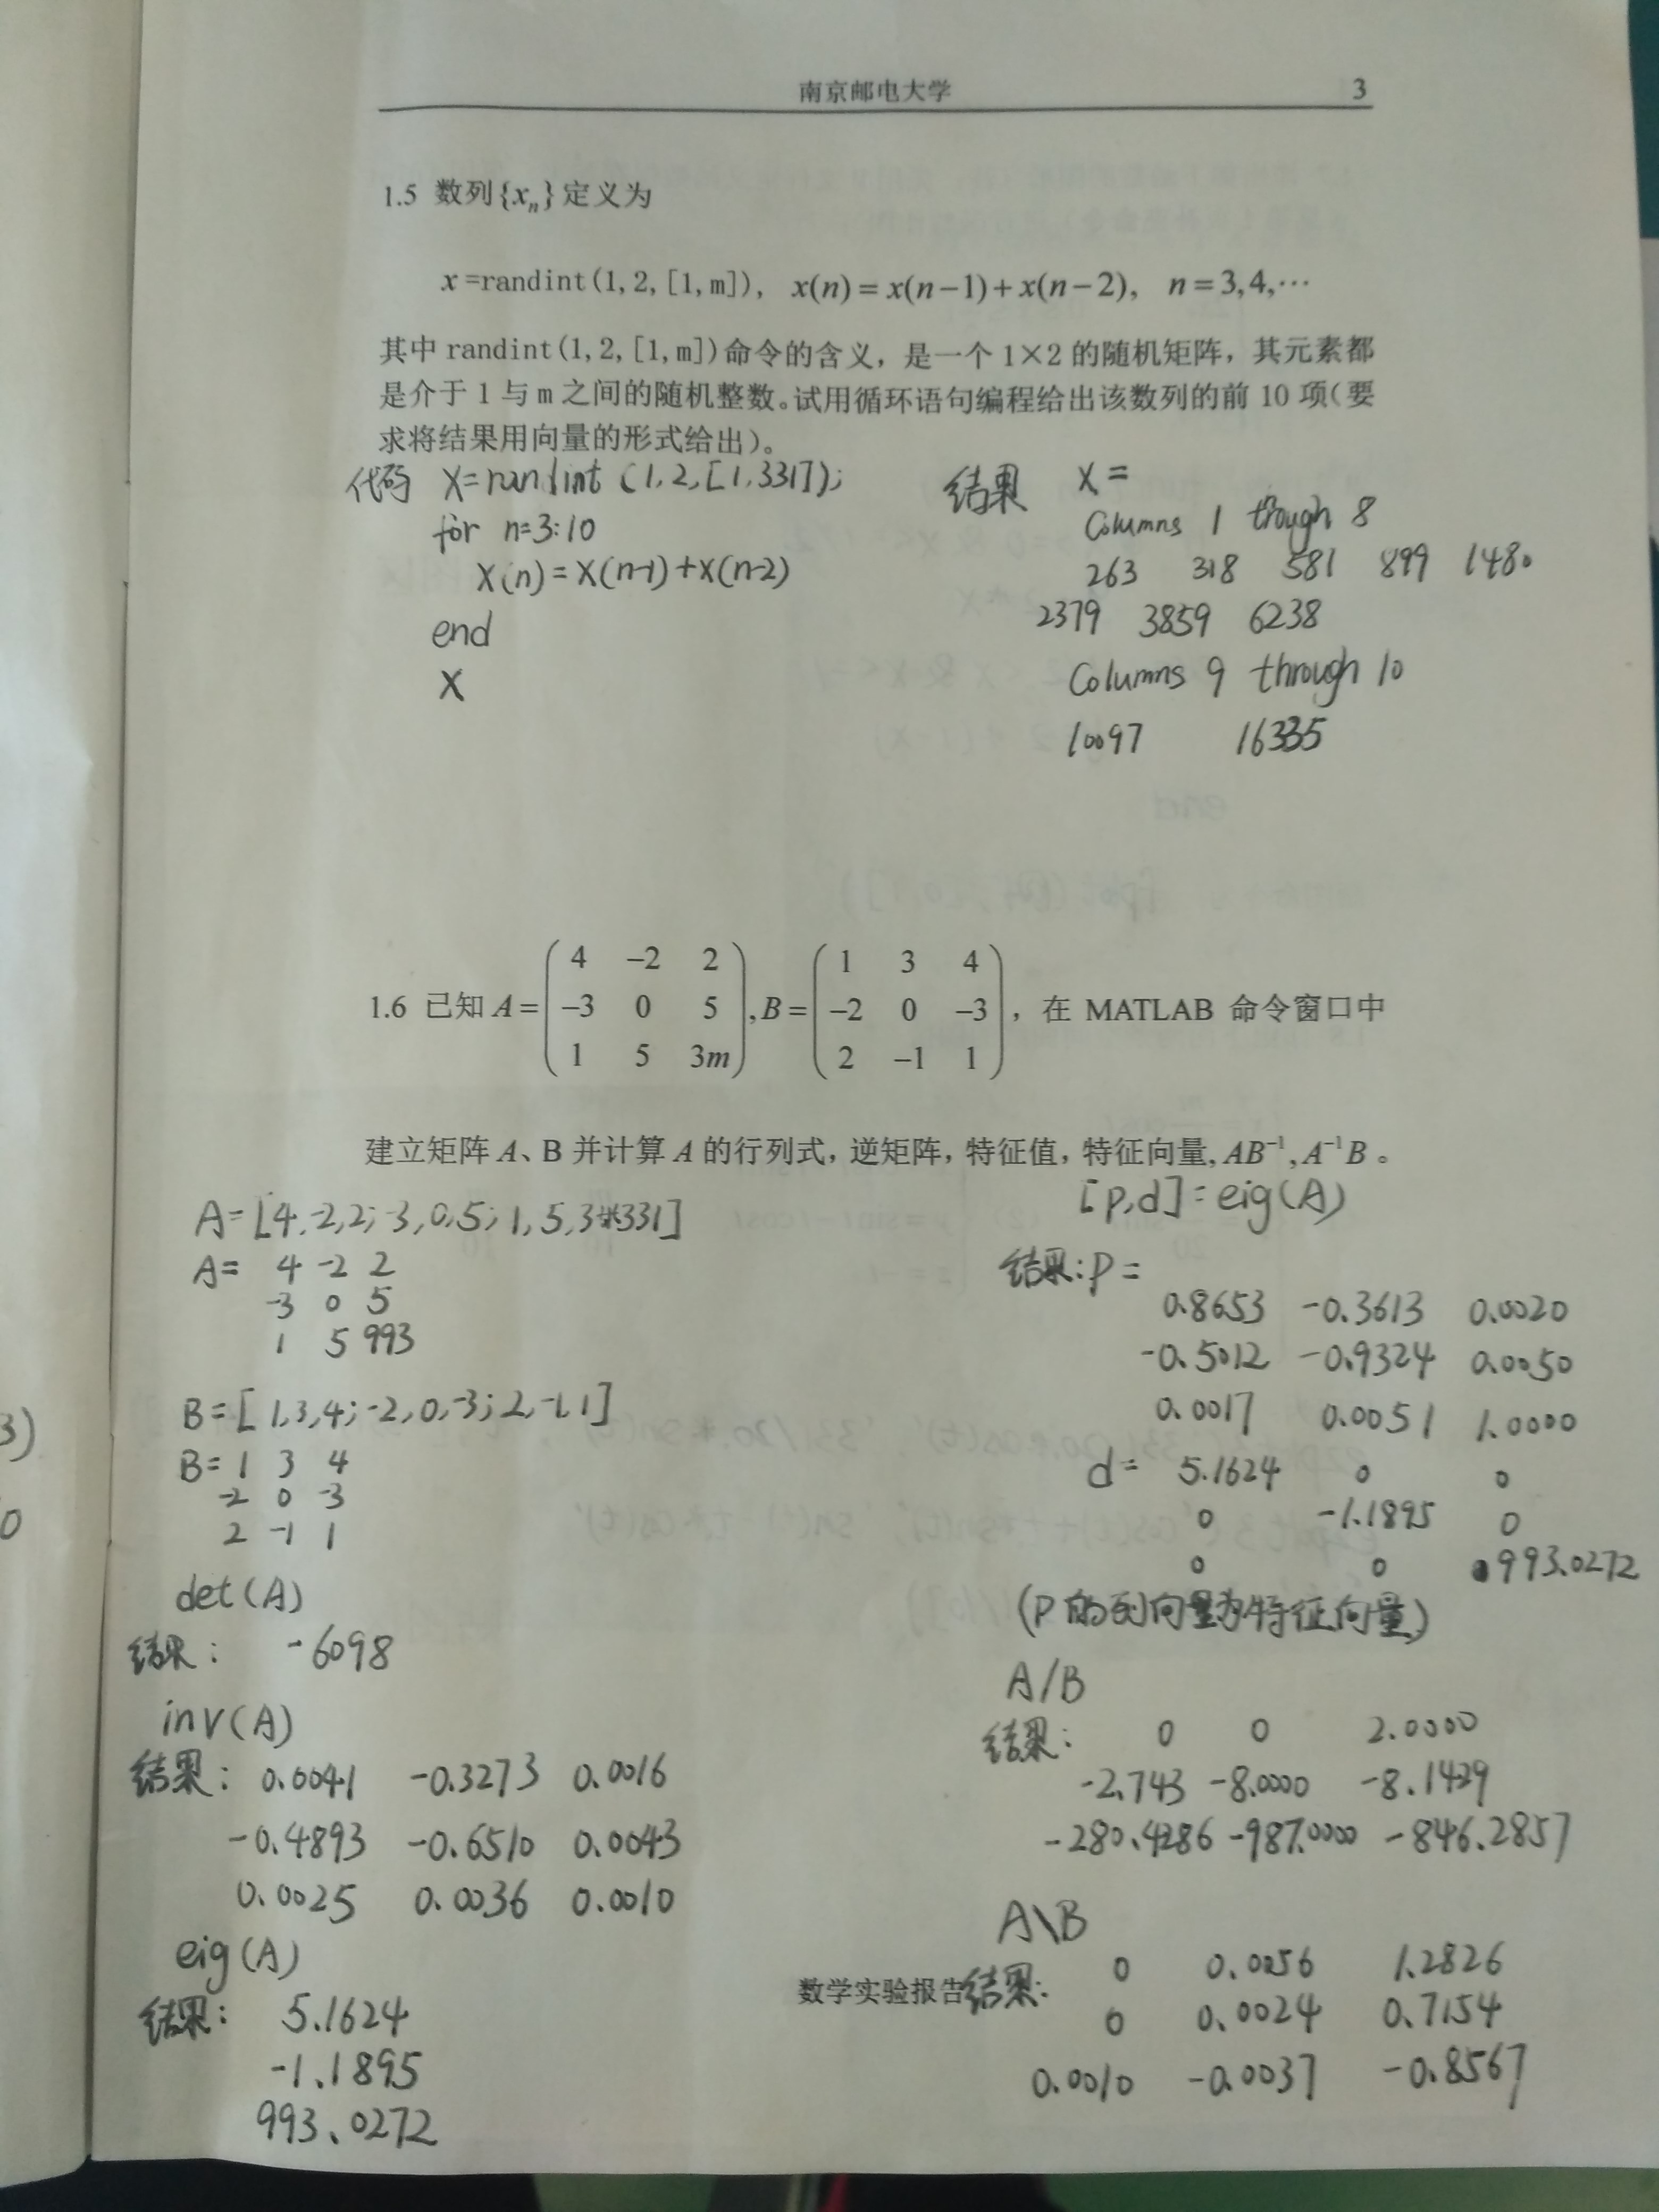 南京邮电大学 3
1.5 数列{xₙ}定义为
x=randint(1,2,[1,m]), x(n)=x(n−1)+x(n−2), n=3,4,⋯
其中 randint(1,2,[1,m])命令的含义，是一个 1×2 的随机矩阵，其元素都
是介于 1 与 m 之间的随机整数。试用循环语句编程给出该数列的前 10 项(要
求将结果用向量的形式给出)。
代码 X=randint (1,2,[1,331]);
for n=3:10
X(n)=X(n-1)+X(n-2)
end
X
结果 X=
Columns 1 though 8
263 318 581 899 1480
2379 3859 6238
Columns 9 through 10
10097 16335
1.6 已知 A=(4 –2 2; –3 0 5; 1 5 3m), B=(1 3 4; –2 0 –3; 2 –1 1)，在 MATLAB 命令窗口中
建立矩阵 A、B 并计算 A 的行列式，逆矩阵，特征值，特征向量, AB⁻¹, A⁻¹B 。
A=[4,-2,2;-3,0,5;1,5,3*331]
A= 4 -2 2
-3 0 5
1 5 993
B=[1,3,4;-2,0,-3;2,-1,1]
B= 1 3 4
-2 0 -3
2 -1 1
det(A)
结果: -6098
inv(A)
结果: 0.0041 -0.3273 0.0016
-0.4893 -0.6510 0.0043
0.0025 0.0036 0.0010
eig(A)
结果: 5.1624
-1.1895
993.0272
[p,d]=eig(A)
结果: P=
0.8653 -0.3613 0.0020
-0.5012 -0.9324 0.0050
0.0017 0.0051 1.0000
d= 5.1624 0 0
0 -1.1895 0
0 0 993.0272
(P的列向量为特征向量)
A/B
结果: 0 0 2.0000
-2.743 -8.0000 -8.1429
-280.4286 -987.0000 -846.2857
A\B
结果: 0 0.0056 1.2826
0 0.0024 0.7154
0.0010 -0.0037 -0.8567
数学实验报告